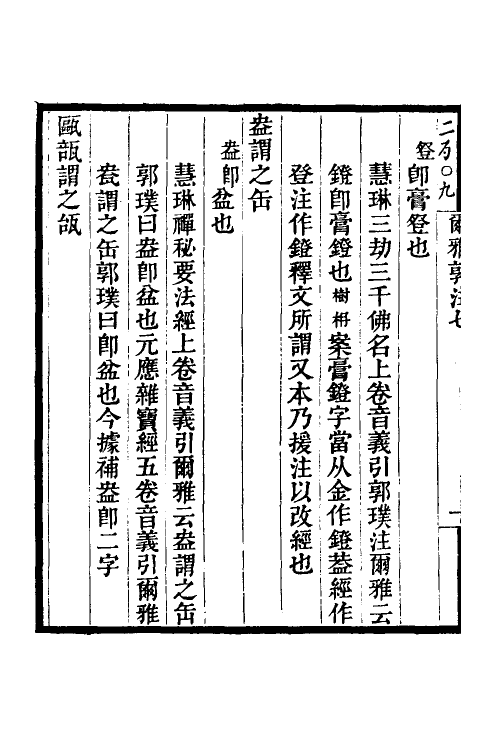 卽膏豋也
慧琳三劫三千佛名上卷音義引郭璞注爾雅云
鐙卽膏鐙也樹枏案膏鐙字當从金作鐙葢經作
登注作鐙釋文所謂又本乃援注以改經也
盎謂之缶
盎卽盆也
慧琳禪秘要法經上卷音義引爾雅云盎謂之缶
郭璞曰盎卽盆也元應雜寶經五卷音義引爾雅
瓫謂之缶郭璞曰卽盆也今據補盎卽二字
甌瓿謂之瓵